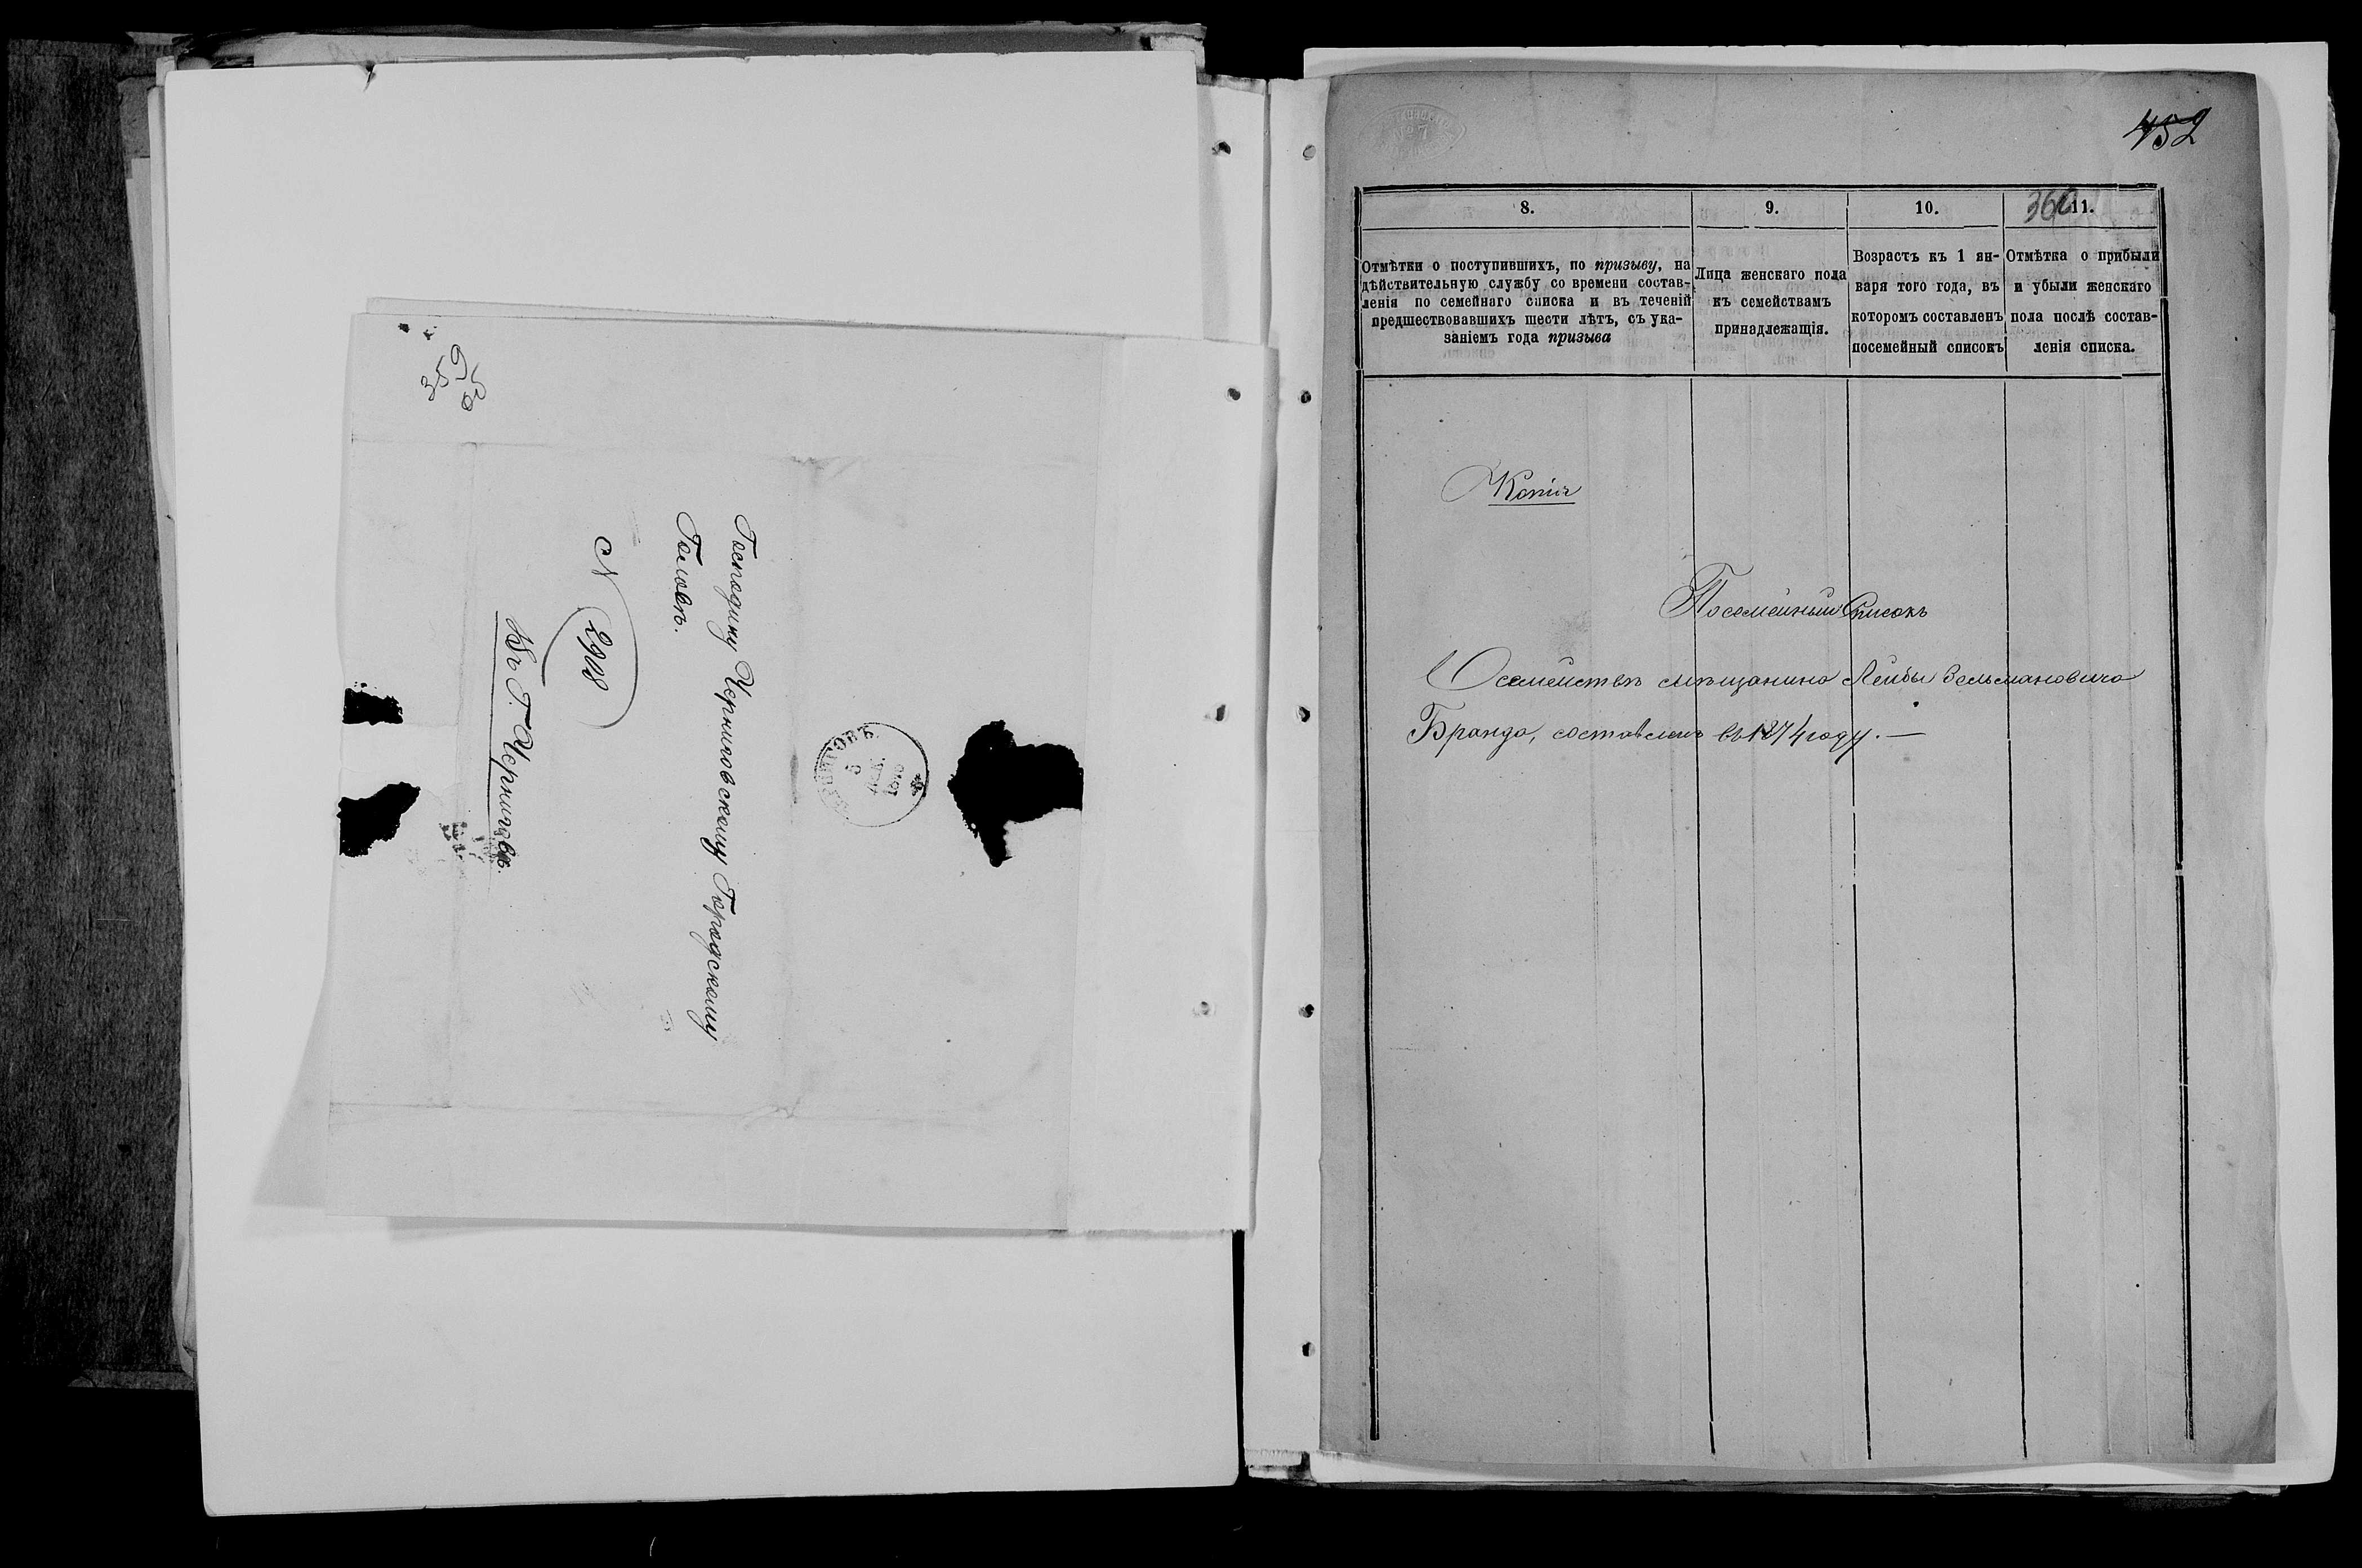 359
об
Господину Черниговскому Городскому
Головѣ.
N 2908
Въ Г. Черниговѣ.
ЧЕРНИГОВЪ
5
452
360
8.
9.
10.
11.
Отмѣтки о поступившихъ, по призыву, на
дѣйствительную службу со времени состав-
ленія по семейнаго списка и въ теченій
предшествовавшихъ шести лѣтъ, съ ука-
заніемъ года призыва
Лица женскаго пола
къ семействамъ
принадлежащія.
Возрастъ къ 1 ян-
варя того года, въ
которомъ составленъ
посемейный списокъ
Отмѣтка о прибыли
и убыли женскаго
пола послѣ состав-
ленія списка.
Копія
Посемейный Списокъ
О семействѣ мѣщанина Лейбы Зельмановича
Бранда, составленъ въ 1874 году. —